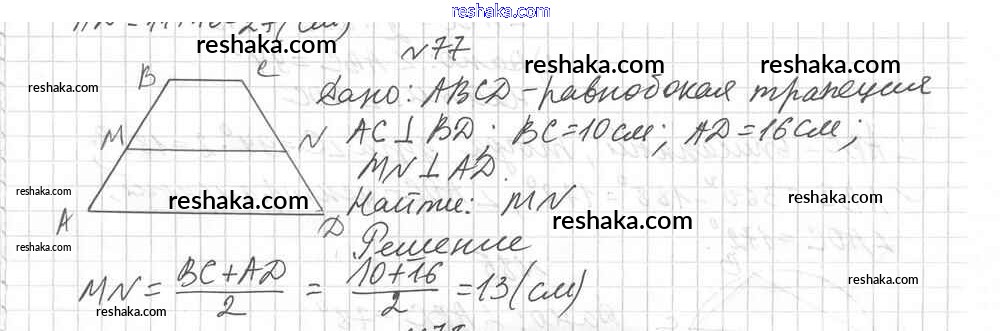 reshaka.com
MN = 
reshaka.com
№77
reshaka.com
reshaka.com
B
C
Дано: ABCD - равнобокая трапеция
reshaka.com
M
N
AC ⊥ BD; BC = 10 см; AD = 16 см;
MN ⊥ AD.
reshaka.com
reshaka.com
reshaka.com
A
D
Найти: MN
reshaka.com
reshaka.com
Решение
MN = (BC + AD)/2 = (10 + 16)/2 = 13 (см)
reshaka.com
reshaka.com